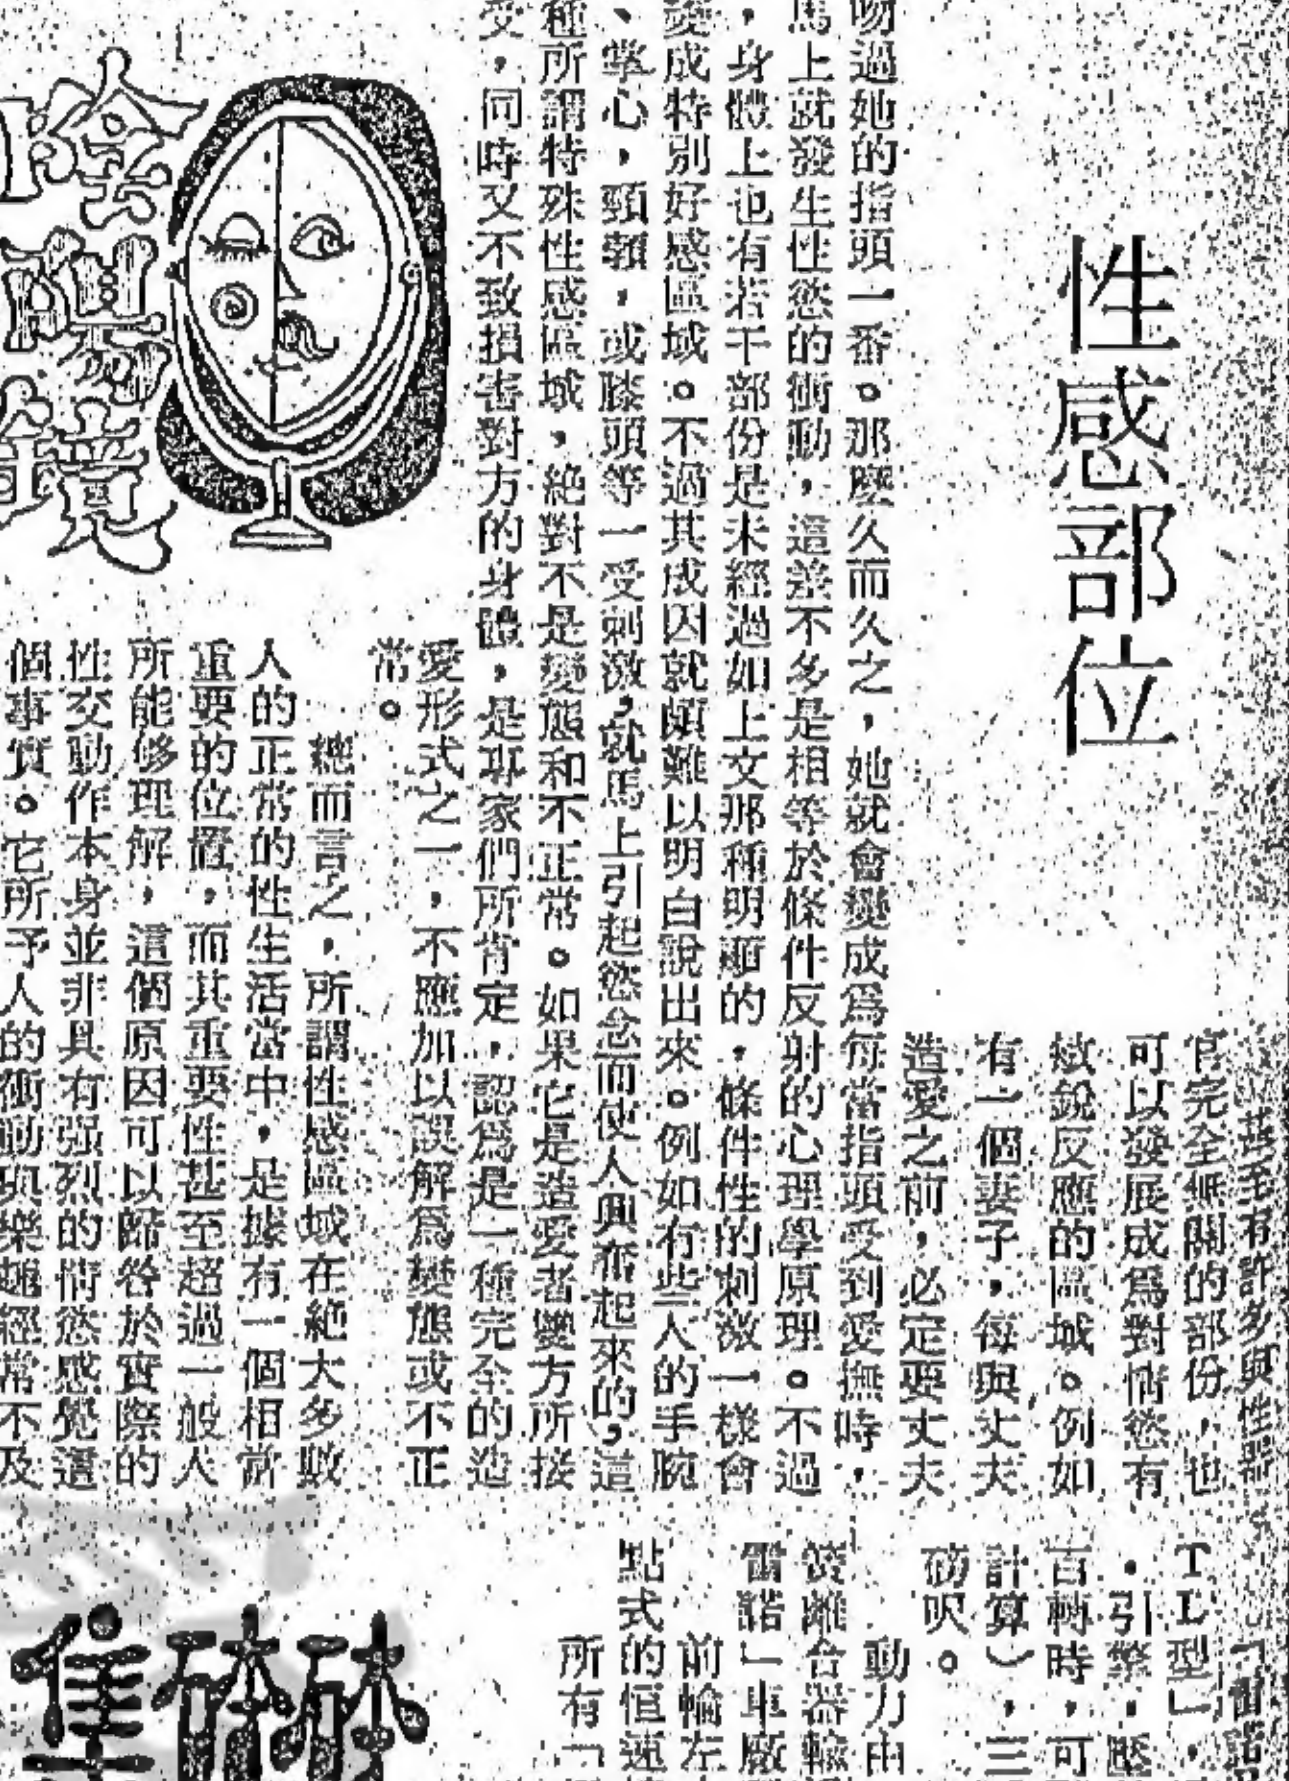 性感部位
甚至有許多與性器
官完全無關的部份，也
可以發展成爲對情慾有
敏銳反應的區域。例如
有一個妻子，每與丈夫
造愛之前，必定要丈夫
吻過她的指頭一番。那麼久而久之，她就會變成爲每當指頭受到愛撫時，
馬上就發生性慾的衝動，這差不多是相等於條件反射的心理學原理。不過
，身體上也有若干部份是未經過如上文那種明顯的，條件性的刺激一樣會
變成特別好感區域。不過其成因就頗難以明白說出來。例如有些人的手腕
、掌心，頸頰，或膝頭等一受刺激，就馬上引起慾念而使人興奮起來的，這
種所謂特殊性感區域，絶對不是變態和不正常。如果它是造愛者雙方所接
受，同時又不致損害對方的身體，是專家們所肯定，認爲是一種完全的造
愛形式之一，不應加以誤解爲變態或不正
常。
總而言之，所謂性感區域在絶大多數
人的正常的性生活當中，是據有一個相當
重要的位置，而其重要性甚至超過一般人
所能够理解，這個原因可以歸咎於實際的
性交動作本身並非具有强烈的情慾感覺這
個事實。它所予人的衝動與樂趣經常不及
陰陽鏡
TL型」，
・引擎，壓
百轉時，可
計算），三
磅呎。
動力由
離合器輸
雷諾」車廠
前輪左
點式的恒速
所有「